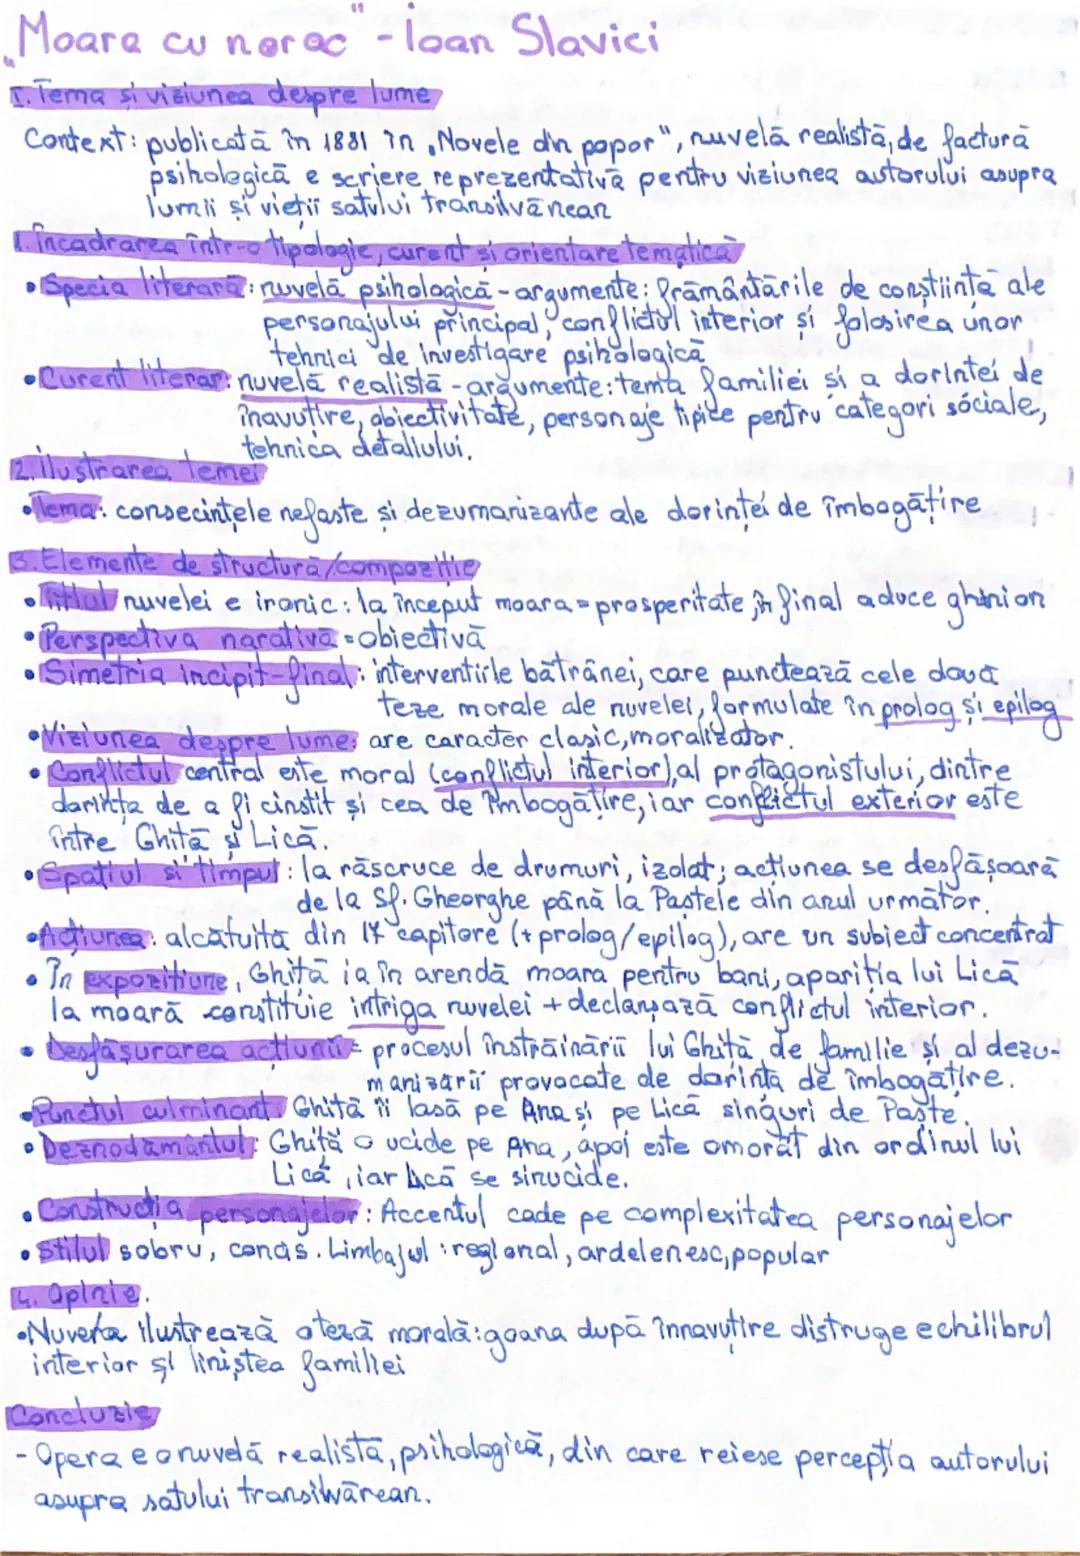 „Moara cu noroc" - Ioan Slavici
I. Tema și viziunea despre lume
Context: publicată în 1881 în „Novele din popor", nuvelă realistă, de factură
psihologică e scriere reprezentativă pentru viziunea autorului asupra
lumii și vieții satului transilvănean
1. Încadrarea într-o tipologie, curent și orientare tematică
• Specia literară: nuvelă psihologică - argumente: frământările de conștiință ale
personajului principal, conflictul interior și folosirea unor
tehnici de investigare psihologică
• Curent literar: nuvelă realistă - argumente: tema familiei și a dorinței de
înavuțire, obiectivitate, personaje tipice pentru categori sociale,
tehnica detaliului.
2. Ilustrarea temei
• Tema: consecințele nefaste și dezumanizante ale dorinței de îmbogățire
3. Elemente de structură/compoziție
• Titlul nuvelei e ironic: la început moara = prosperitate, în final aduce ghinion
• Perspectiva narativă = obiectivă
• Simetria incipit-final: intervențiile bătrânei, care punctează cele două
teze morale ale nuvelei, formulate în prolog și epilog
• Viziunea despre lume: are caracter clasic, moralizator.
• Conflictul central este moral (conflictul interior), al protagonistului, dintre
dorința de a fi cinstit și cea de îmbogățire, iar conflictul exterior este
între Ghiță și Lică.
• Spațiul și timpul: la răscruce de drumuri, izolat; acțiunea se desfășoară
de la Sf. Gheorghe până la Paștele din anul următor.
• Acțiunea: alcătuită din 17 capitore (+ prolog/epilog), are un subiect concentrat
• În expozițiune, Ghiță ia în arendă moara pentru bani, apariția lui Lică
la moară constituie intriga nuvelei + declanșază conflictul interior.
• Desfășurarea acțiunii = procesul înstrăinării lui Ghiță de familie și al dezu-
manizării provocate de dorința de îmbogățire.
• Punctul culminant: Ghiță îi lasă pe Ana și pe Lică singuri de Paște
• Deznodământul: Ghiță o ucide pe Ana, apoi este omorât din ordinul lui
Lică, iar Lică se sinucide.
• Construcția personajelor: Accentul cade pe complexitatea personajelor
• Stilul sobru, concis. Limbajul: regional, ardelenesc, popular
4. Opinie.
• Nuvela ilustrează o teză morală: goana după înnavuțire distruge echilibrul
interior și liniștea familiei
Concluzie
- Opera e o nuvelă realistă, psihologică, din care reiese percepția autorului
asupra satului transilvănean.